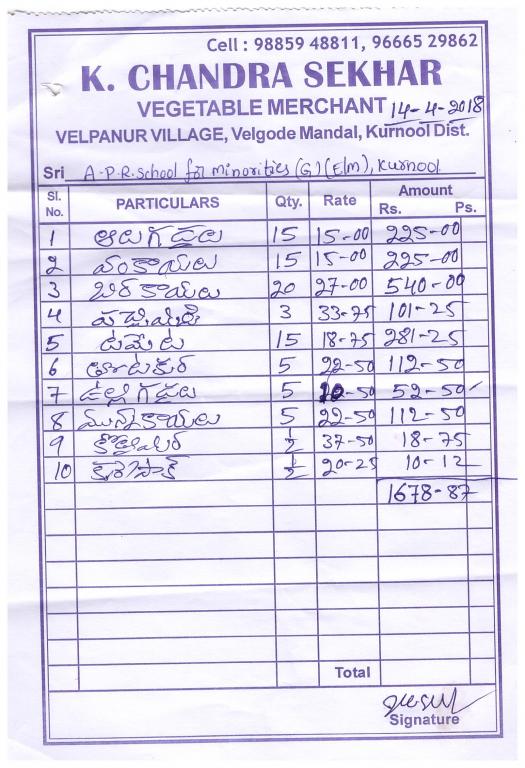 Cell : 98859 48811, 96665 29862
K. CHANDRA SEKHAR
VEGETABLE MERCHANT 14-4-2018
VELPANUR VILLAGE, Velgode Mandal, Kurnool Dist.
Sri A.P.R. school for minorities (G) (E/m), Kurnool
Sl. No. PARTICULARS Qty. Rate Amount Rs. Ps.
1 ఆలుగడ్డలు 15 15-00 225-00
2 వంకాయలు 15 15-00 225-00
3 బీరకాయలు 20 27-00 540-00
4 పచ్చిమిర్చి 3 33-75 101-25
5 టమేట 15 18-75 281-25
6 5 22-50 112-50
7 ఉల్లిగడ్డలు 5 10-50 52-50
8 మునక్కాయలు 5 22-50 112-50
9 ½ 37-50 18-75
10 ½ 20-25 10-12
1678-87
Total
Signature